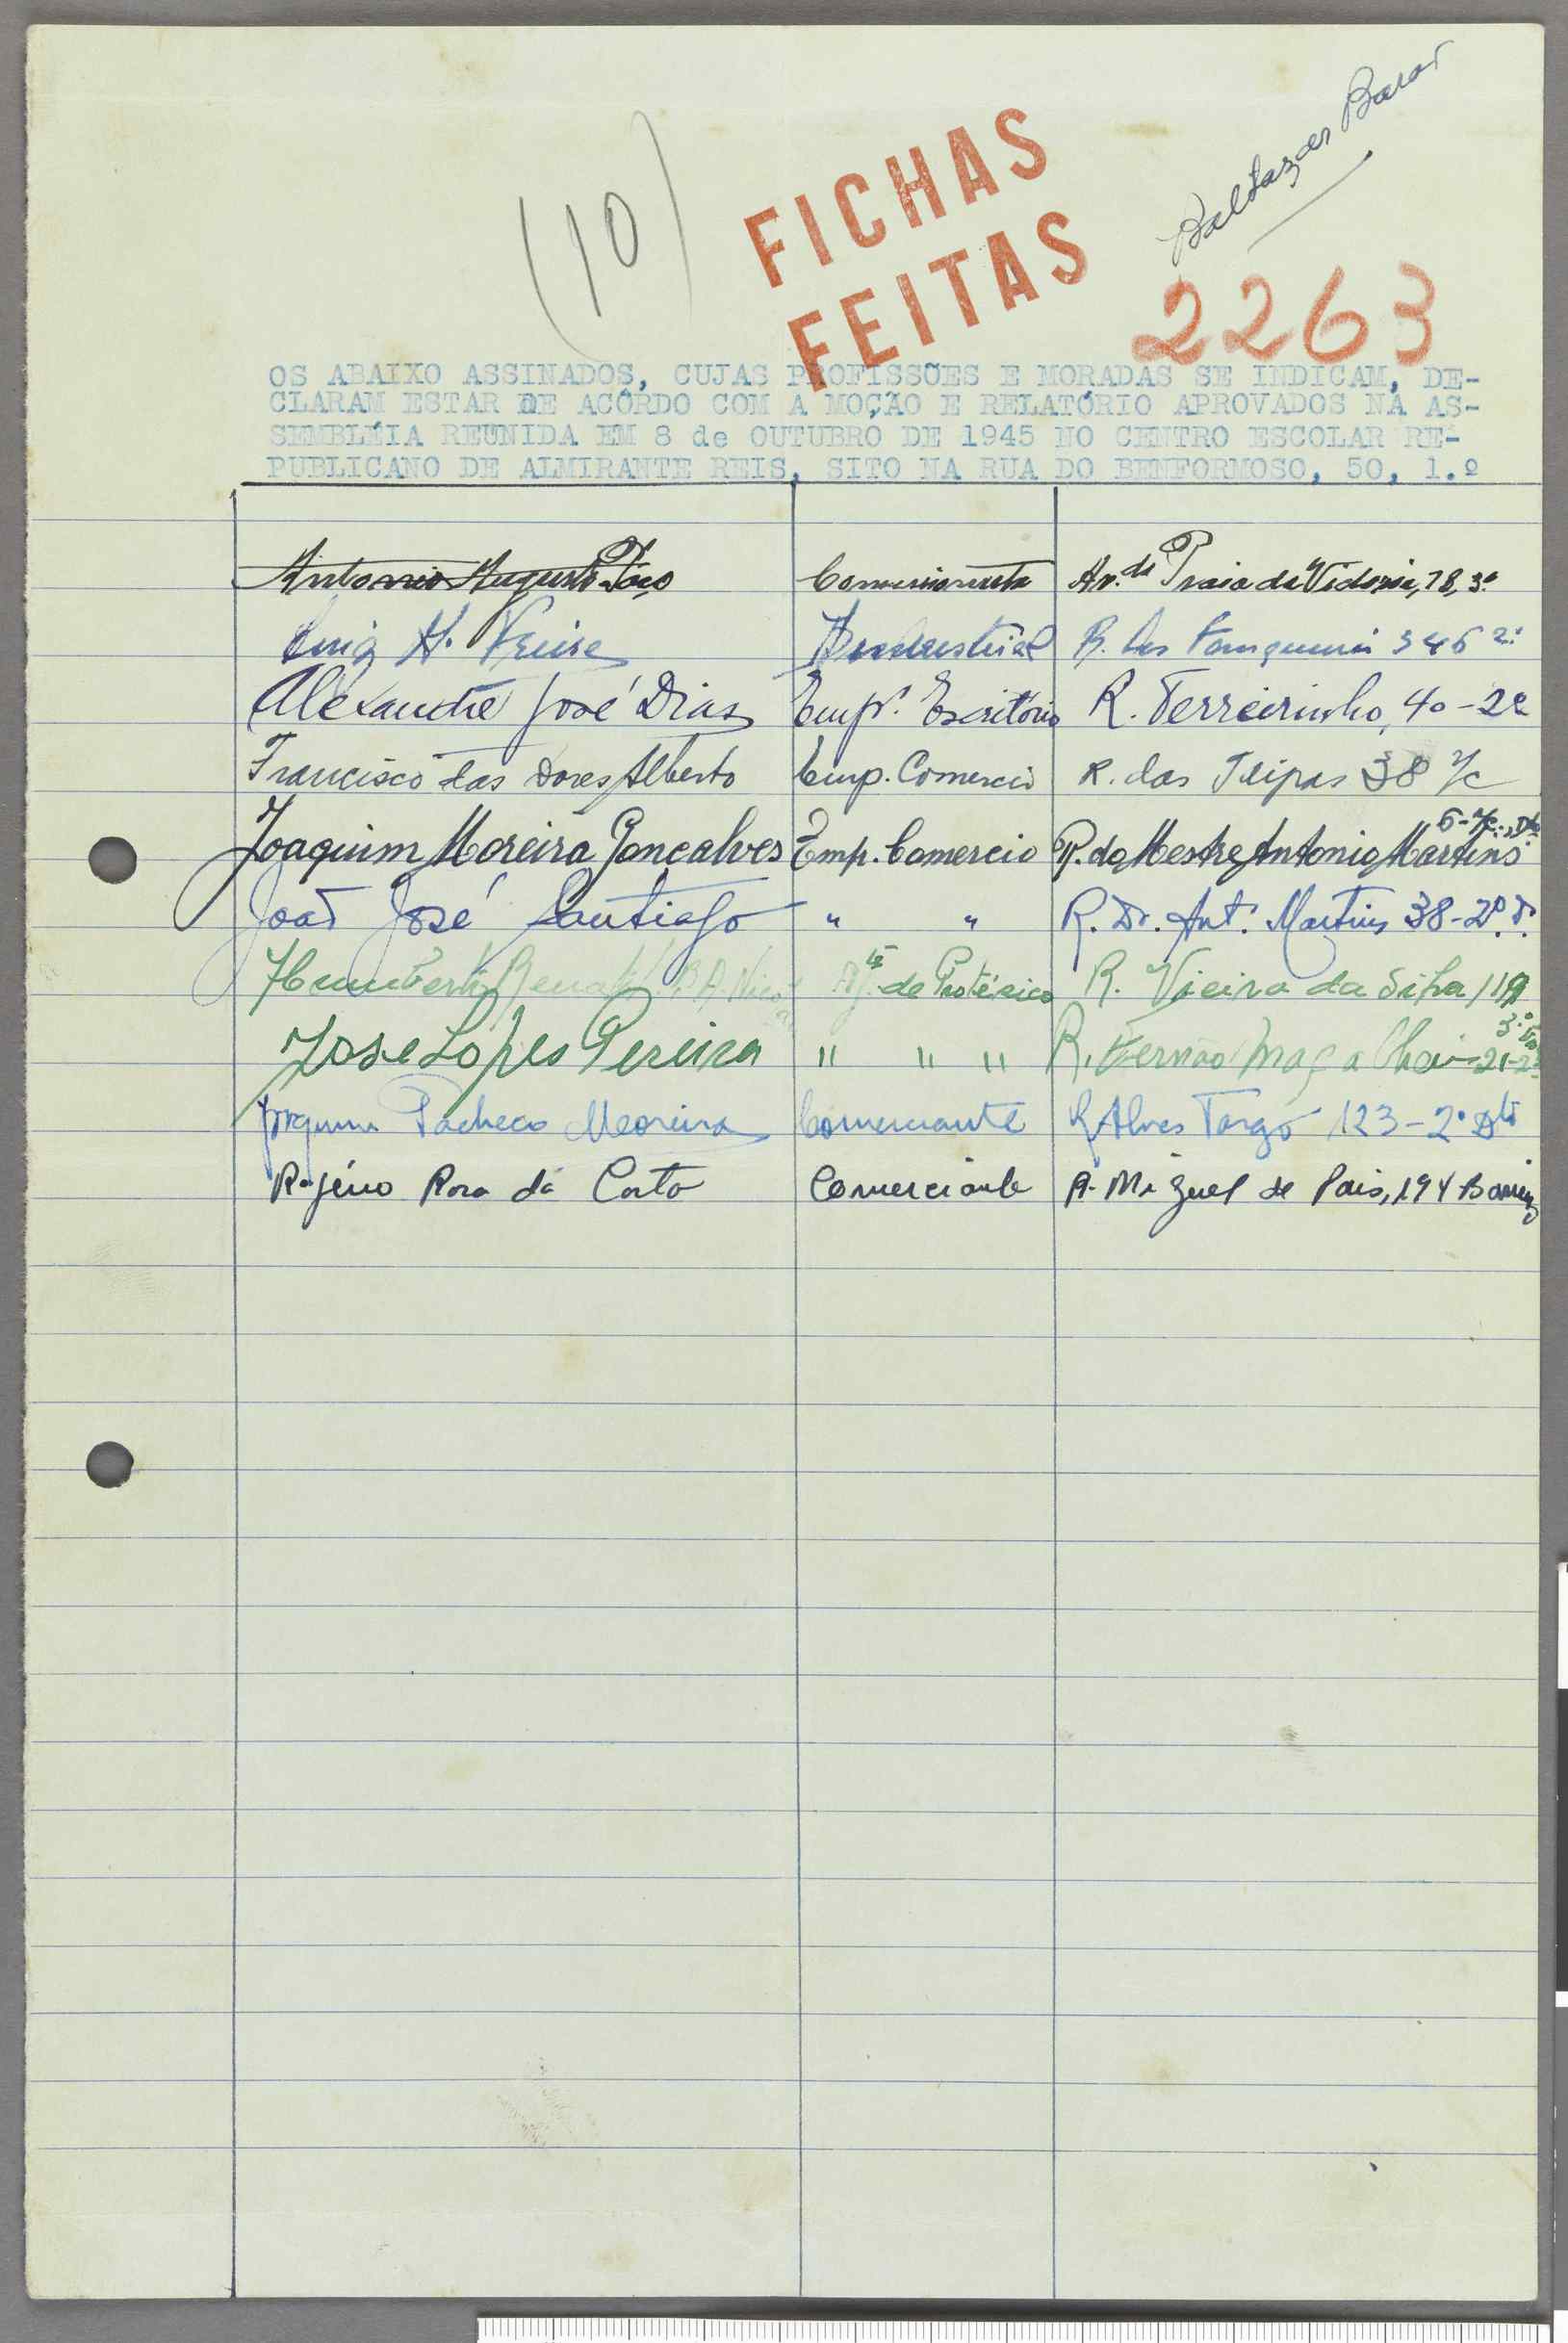 (10)
FICHAS
FEITAS
Baltazar
2263
OS ABAIXO ASSINADOS, CUJAS PROFISSÕES E MORADAS SE INDICAM, DE-
CLARAM ESTAR DE ACÔRDO COM A MOÇÃO E RELATÓRIO APROVADOS NA AS-
SEMBLÉIA REUNIDA EM 8 de OUTUBRO DE 1945 NO CENTRO ESCOLAR RE-
PUBLICANO DE ALMIRANTE REIS, SITO NA RUA DO BENFORMOSO, 50, 1.º
Antonio Augusto Comissionista Av.da Praia da Victoria, 78, 3.º
Industrial R. dos 346 2º
Alexandre José Dias Emp.º Escritório R. Terreirinho, 40-2º
Francisco das Dores Alberto Emp. Comercio R. das Tripas 38 r/c
Joaquim Moreira Gonçalves Emp. Comercio R. do Mestre Antonio Martins 6-r/c.
João José Santiago " " R. Dr. Ant.º Martins 38-2º.D.
de R. Vieira da Silva
José Lopes Pereira " " " R. Fernão 21-2º
Joaquim Pacheco Moreira Comerciante R Alves Torgo 123-2º Dtº
Rogério Rosa da Costa Comerciante R. Miguel de Pais, 194